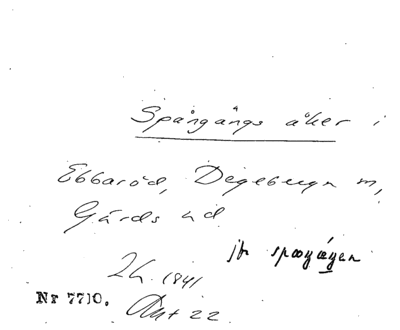 Spångångs åker i
Ebbaröd, Degeberga m,
Gärds hd
jfr spogägen
1941
Nr 7710.
22